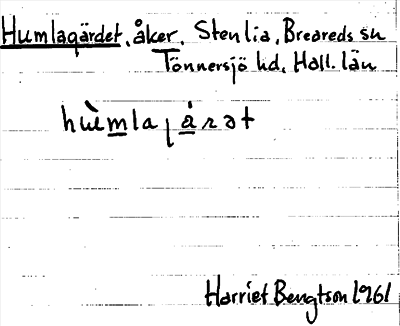 Humlagärdet, åker, Stenlia, Breareds sn
Tönnersjö hd, Hall. län
hùmlajárət
Harriet Bengtson 1961